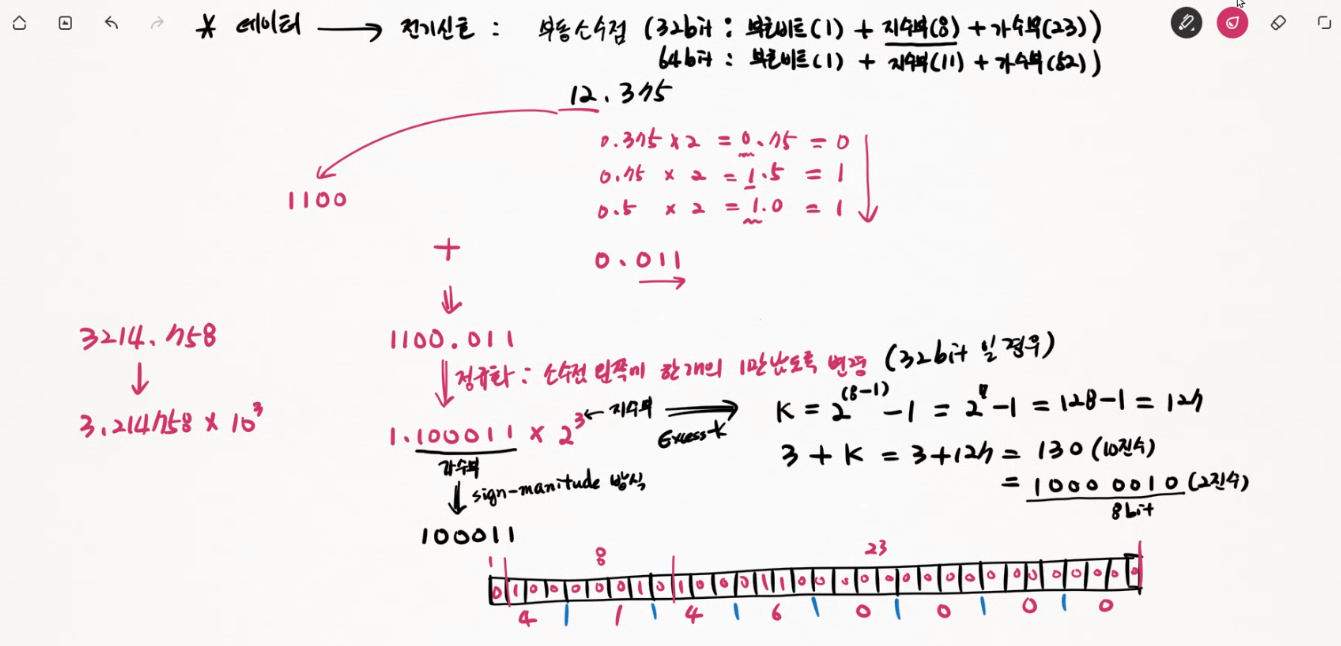 * 데이터 → 전기신호 : 부동소수점 (32bit : 부호비트(1) + 지수부(8) + 가수부(23))
64bit : 부호비트(1) + 지수부(11) + 가수부(52))
12.375
0.375 x 2 = 0.75 = 0
0.75 x 2 = 1.5 = 1
0.5 x 2 = 1.0 = 1
1100
+
0.011
3214.758
1100.011
정규화 : 소수점 왼쪽에 한개의 1만 남도록 변경 (32bit 일 경우)
3.214758 x 10³
1.100011 x 2³ ← 지수부
Excess-K
K = 2^(8-1) - 1 = 2⁷ - 1 = 128 - 1 = 127
가수부
3 + K = 3 + 127 = 130 (10진수)
sign-manitude 방식
= 1000 0010 (2진수)
8bit
100011
1 8 23
0 1 0 0 0 0 0 1 0 1 0 0 0 1 1 0 0 0 0 0 0 0 0 0 0 0 0 0 0 0 0 0
4 1 4 6 0 0 0 0